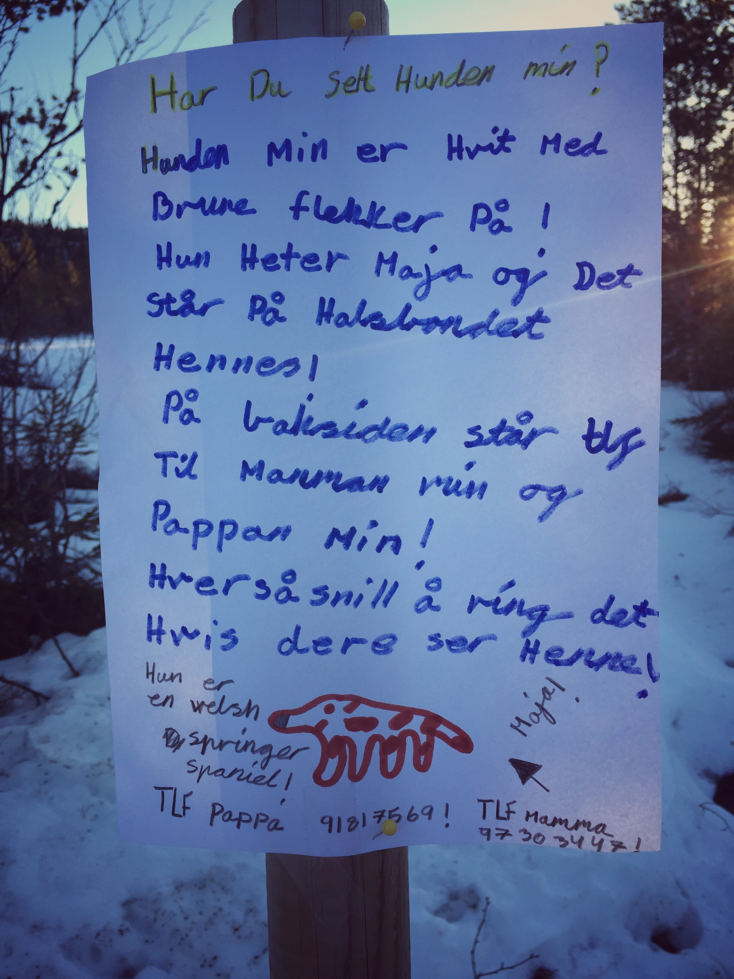 Har Du Sett Hunden min?
Hunden Min er Hvit Med
Brune flekker På!
Hun Heter Maja og Det
står På Halsbondet
Hennes!
På baksiden står
Til Mamman min og
Pappan Min!
Hversåsnill å ring det
Hvis dere ser Henne!
Hun er
en welsh
springer
spaniel!
Maja!
TLF Pappa 91817569!
TLF Mamma
97303447!